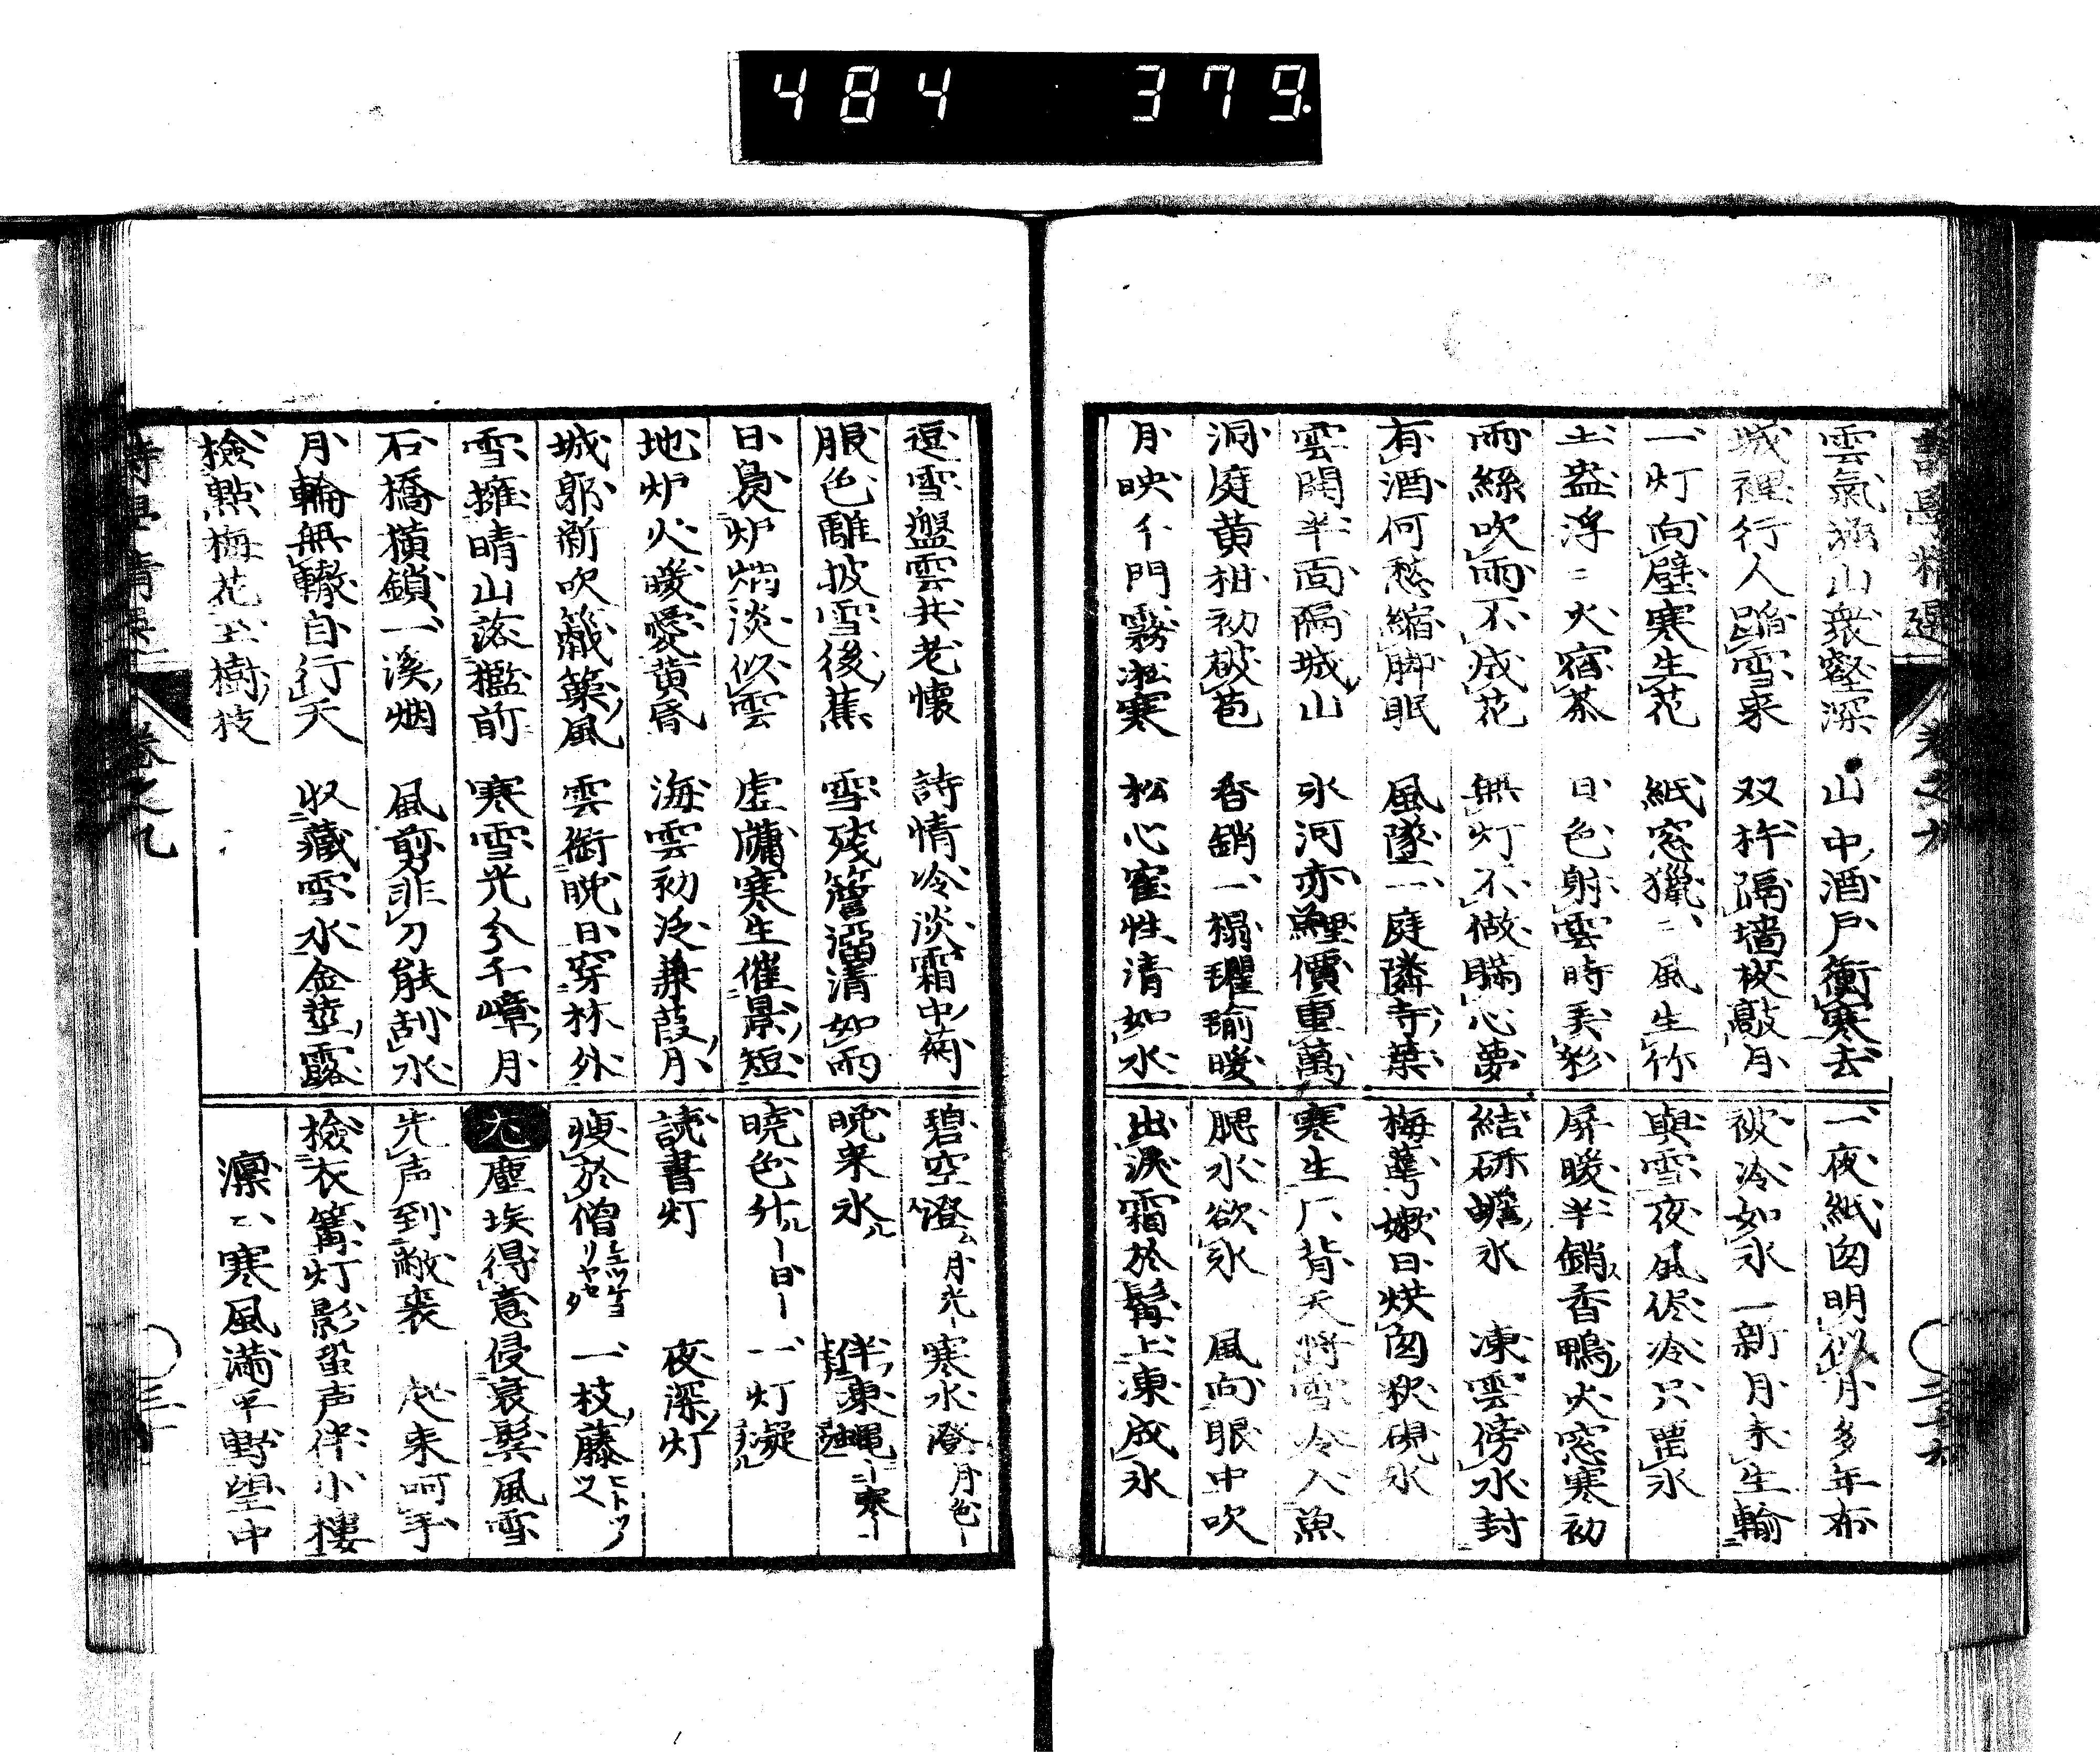 484 379.
雲氣 山衆壑深 山中酒戸衝寒去
城裡行人踏雪来 双杵隔墻夜敲月
一灯向壁寒生花 紙窓獵〻風生竹
土盎浮〻火宿茶 日色射雲時美彩
雨絲吹雨不成花 無灯不做瞞心夢
有酒何愁縮脚眠 風墜一庭隣寺葉
雲開半面隔城山 氷河赤鯉價重萬
洞庭黄柑初破苞 香銷一榻氍毹暖
月映千門霧凇寒 松心寉性清如水
一夜紙囱明似月多年布
被冷如氷 一新月未生輪
與雪夜風侭冷只
屏暖半銷香鴨火窓寒初
結硯蟾氷 凍雲傍水封
梅萼嫩日烘囱 硯氷
寒生厂背天將雪冷入魚
腮水欲氷 風向眼中吹
出涙霜於髯上凍成氷
逗雪盤雲共老懐 詩情冷淡霜中菊
服色離披雪後蕉 雪残簷溜清如雨
日 炉烟淡似雲 虚牖寒生催景短
地炉火暖愛黄昏 海雲初泛蒹葭月
城郭新吹篥風 雲銜晩日穿林外
雪擁晴山落檻前 寒雪光分千嶂月
石橋横鎖一溪烟 風剪非刀能刮水
月輪無轍自行天 収藏雪水金莖露
檢點梅花玉樹枝
碧空澄 月光 寒水澄 月色
晩来氷 伴凍蝿 寒
暁色升 日 一灯凝
読書灯 夜深灯
痩於僧 一枝藤
尤 塵埃得意侵衰鬓風雪
先声到敝裘 起来呵手
檢衣篝灯影蛩声伴小楼
凛〻寒風満平野望中